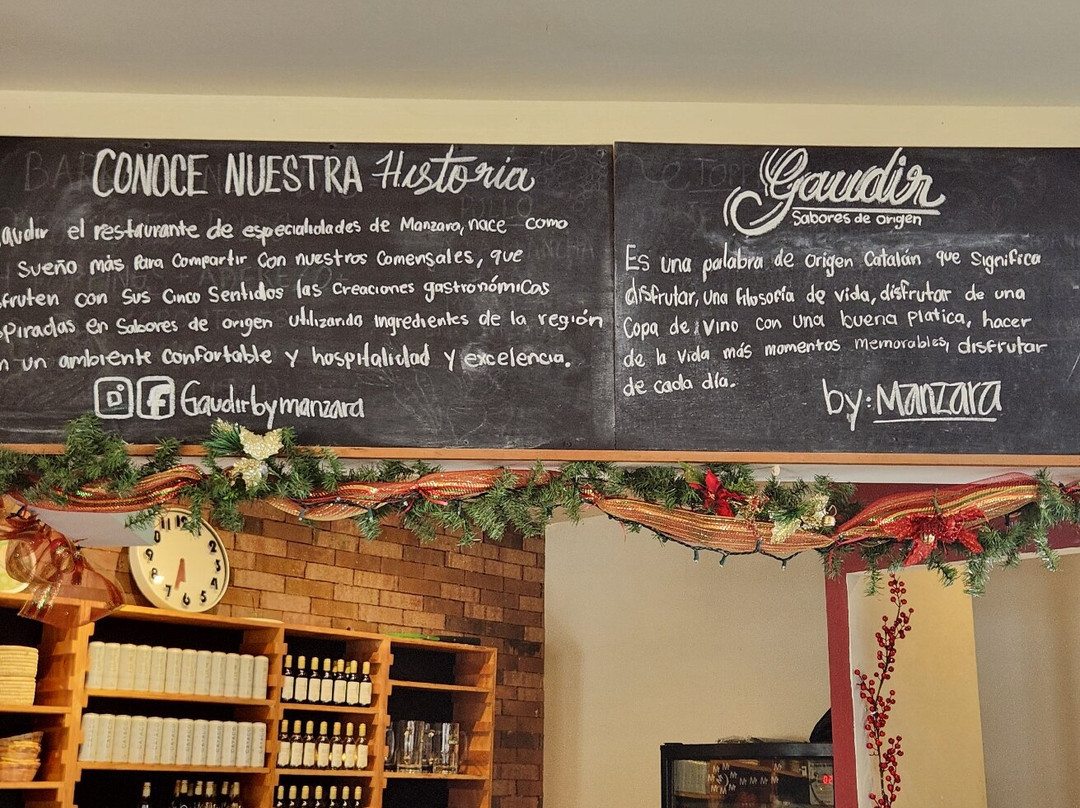 CONOCE NUESTRA Historia
audir el restaurante de especialidades de Manzara, nace como
Sueño más Para Compartir Con nuestros Comensales, que
fruten con Sus Cinco Sentidos las Creaciones gastronómicas
piradas en Sabores de origen utilizando ingredientes de la región
n un ambiente confortable y hospitalidad y excelencia.
Gaudirbymanzara
Gaudir
Sabores de origen
Es una palabra de Origen Catalán que significa
disfrutar, Una filosofía de vida, disfrutar de una
Copa de Vino con una buena Platica, hacer
de la vida más momentos memorables, disfrutar
de cada día.
by: Manzara